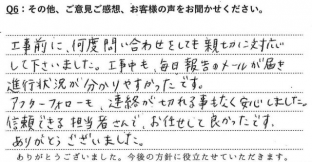 Q6：その他、ご意見ご感想、お客様の声をお聞かせください。
工事前に、何度問い合わせをしても親切に対応
して下さいました。工事中も、毎日報告のメールが届き
進行状況が分かりやすかったです。
アフターフォローも、連絡が切れる事もなく安心しました。
信頼できる担当者さんで、お任せして良かったです。
ありがとうございました。
ありがとうございました。今後の方針に役立たせていただきます。